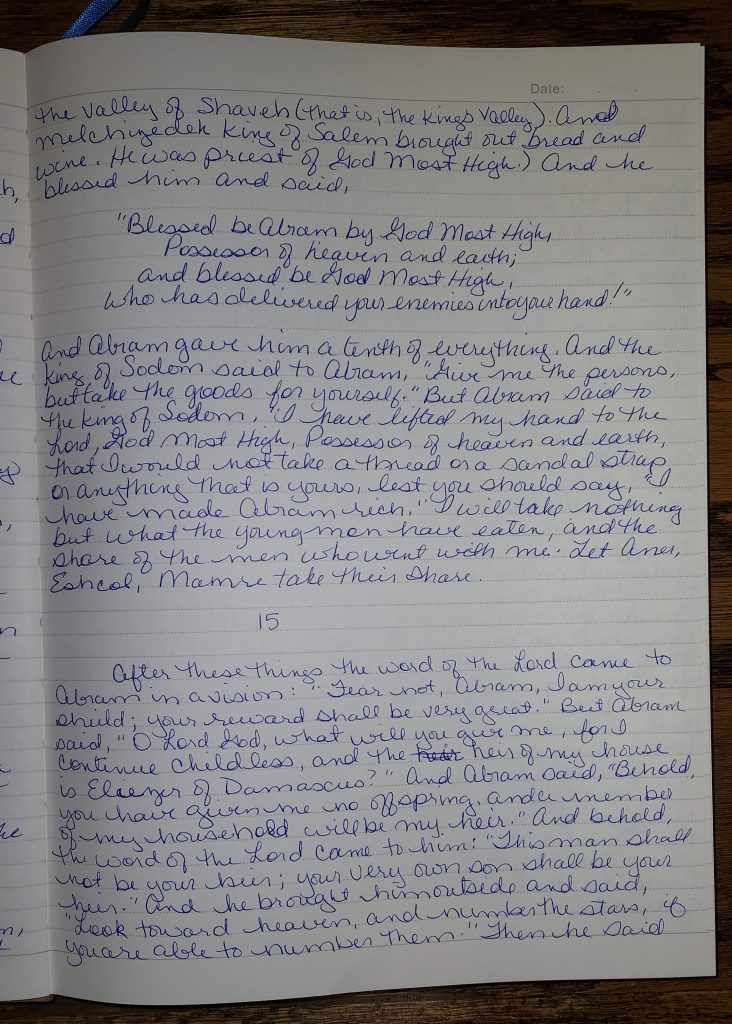 Date:
the valley of Shaveh (that is, the Kings Valley). And
Melchizedek King of Salem brought out bread and
wine. He was priest of God Most High.) And he
blessed him and said,
"Blessed be Abram by God Most High,
Possessor of heaven and earth;
and blessed be God Most High,
Who has delivered your enemies into your hand!"
And Abram gave him a tenth of everything. And the
King of Sodom said to Abram, "Give me the persons,
but take the goods for yourself." But Abram said to
the King of Sodom, "I have lifted my hand to the
Lord, God Most High, Possessor of heaven and earth,
that I would not take a thread or a sandal strap
or anything that is yours, lest you should say, "I
have made Abram rich." I will take nothing
but what the young men have eaten, and the
share of the men who went with me. Let Aner,
Eshcol, Mamre take their share.
15
After these things the word of the Lord came to
Abram in a vision: "Fear not, Abram, I am your
shield; your reward shall be very great." But Abram
said, "O Lord God, what will you give me, for I
continue childless, and the heir of my house
is Eliezer of Damascus?" And Abram said, "Behold,
you have given me no offspring, and a member
of my household will be my heir." And behold,
the word of the Lord came to him: "This man shall
not be your heir; your very own son shall be your
heir." And he brought him outside and said,
"Look toward heaven, and number the stars, if
you are able to number them." Then he said